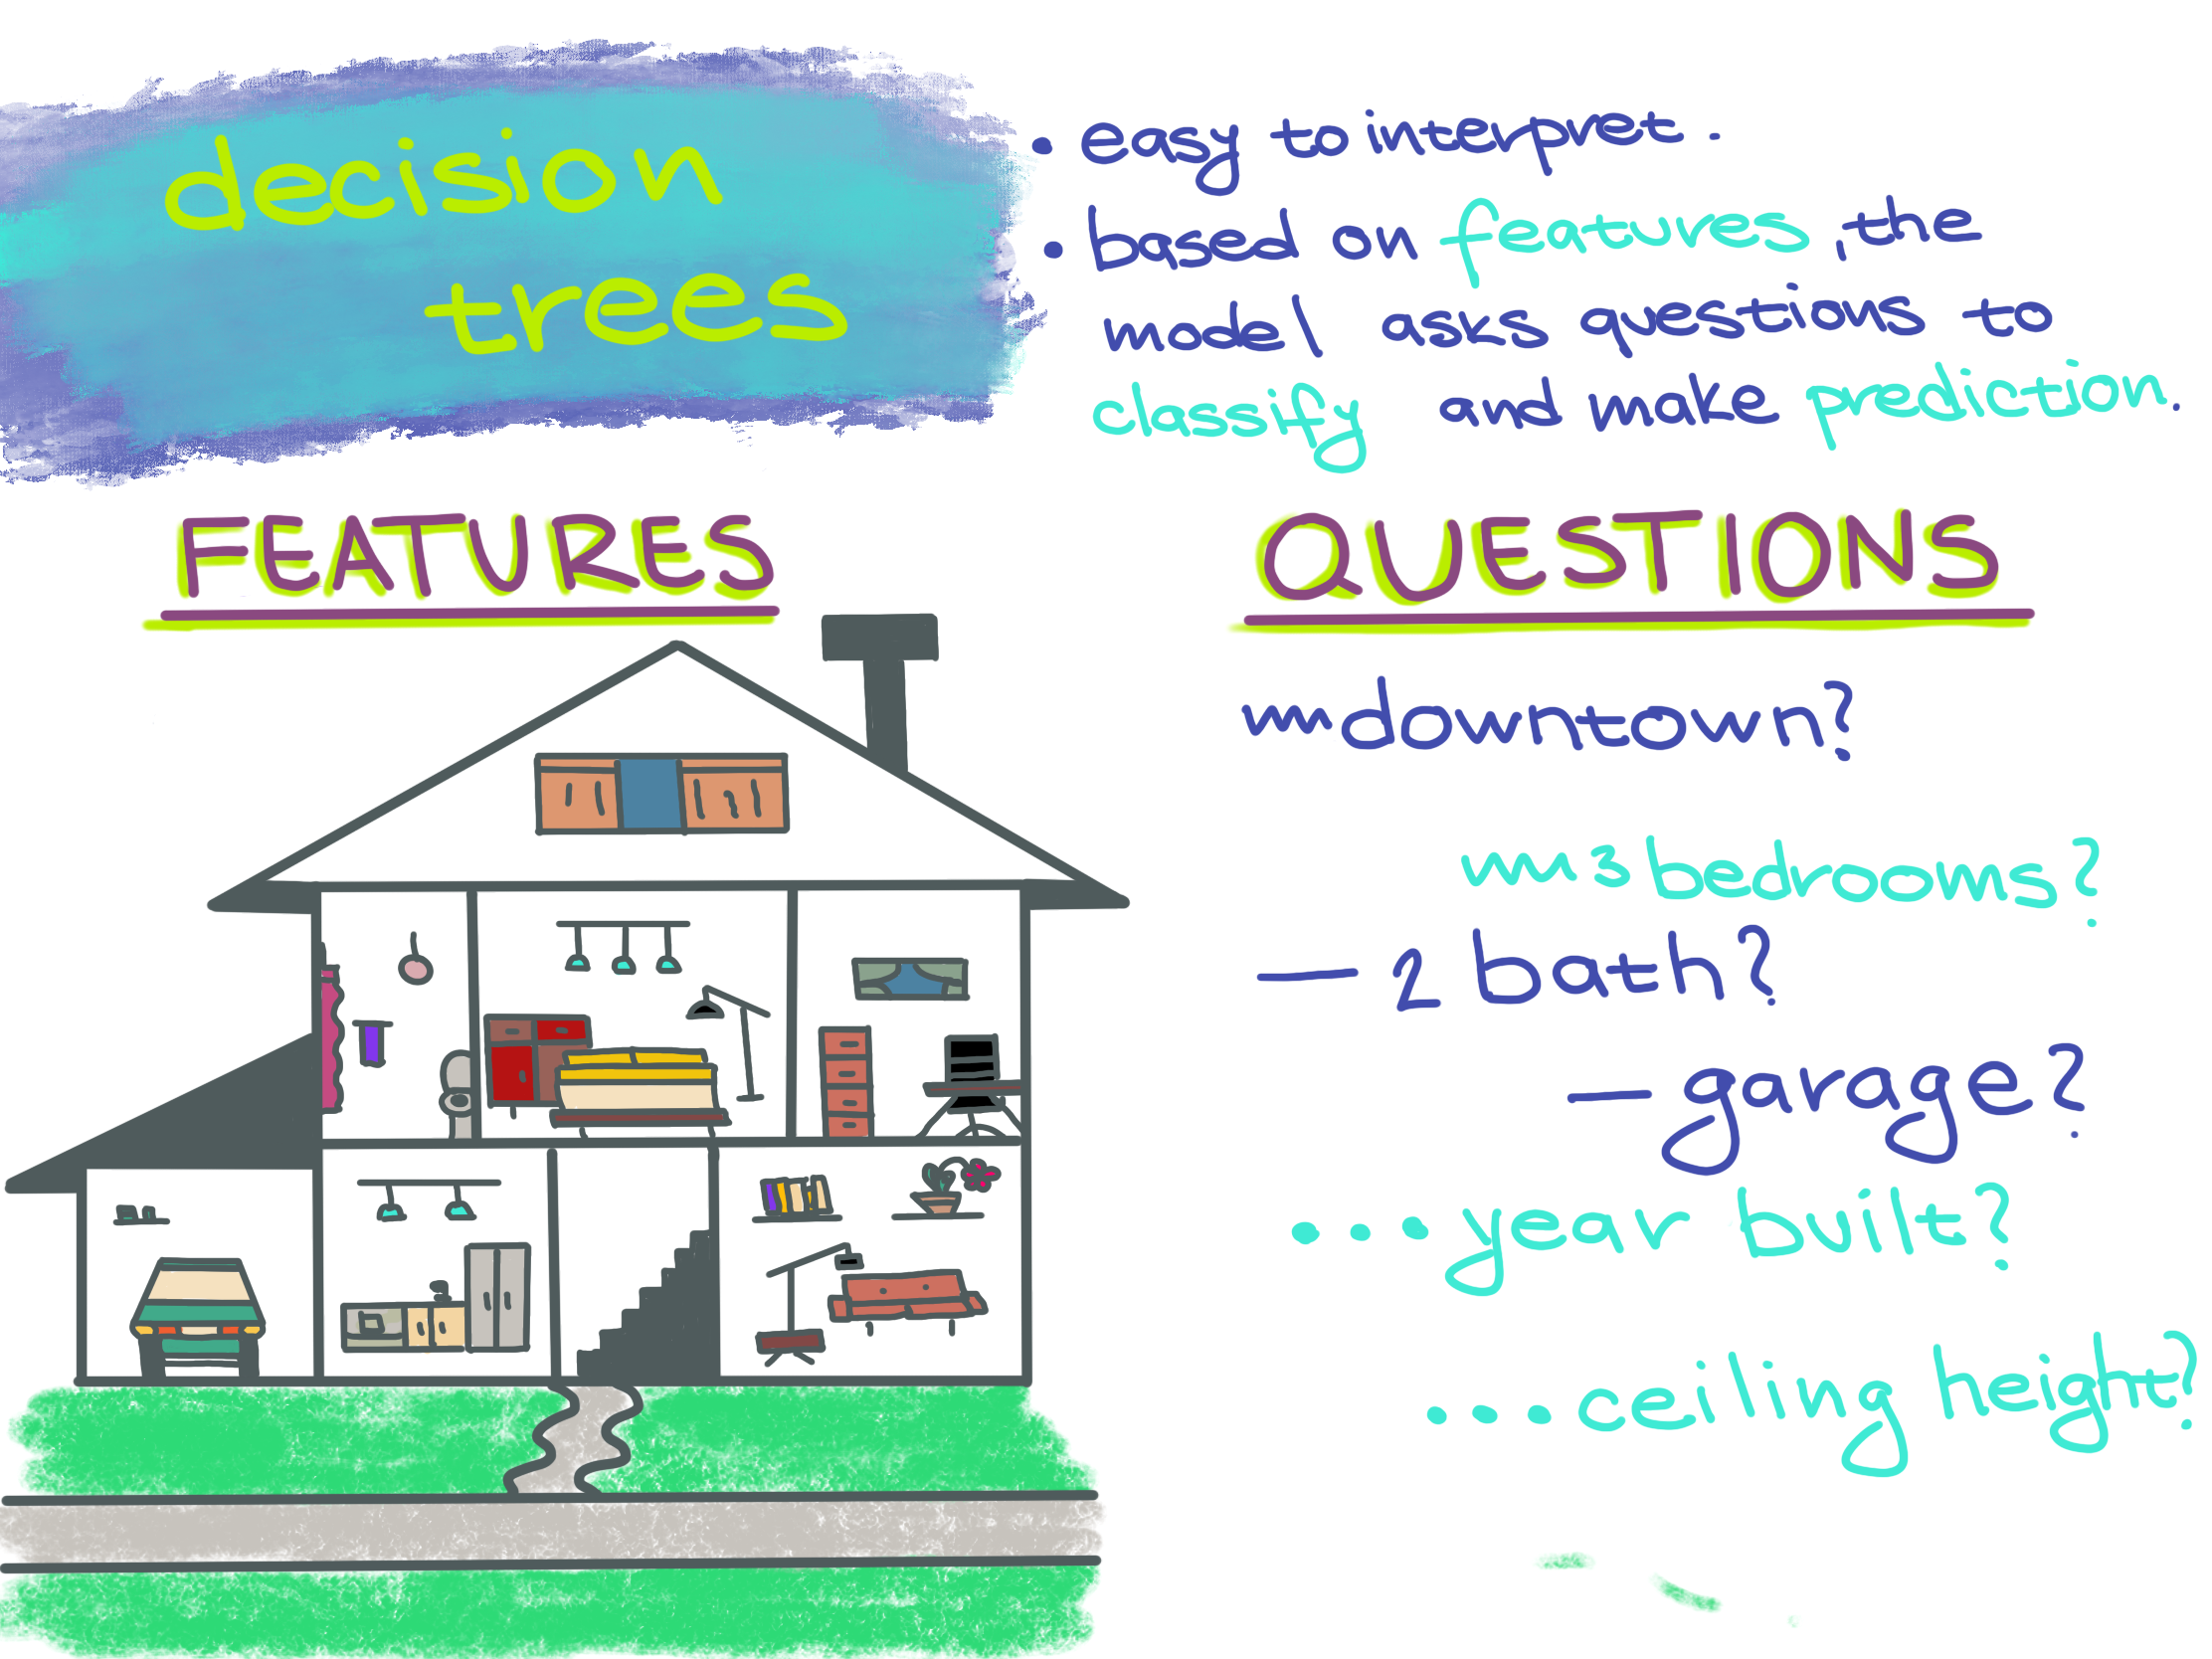 decision
trees
• easy to interpret.
• based on features, the
model asks questions to
classify and make prediction.
FEATURES
QUESTIONS
downtown?
3 bedrooms?
— 2 bath?
— garage?
...year built?
...ceiling height?